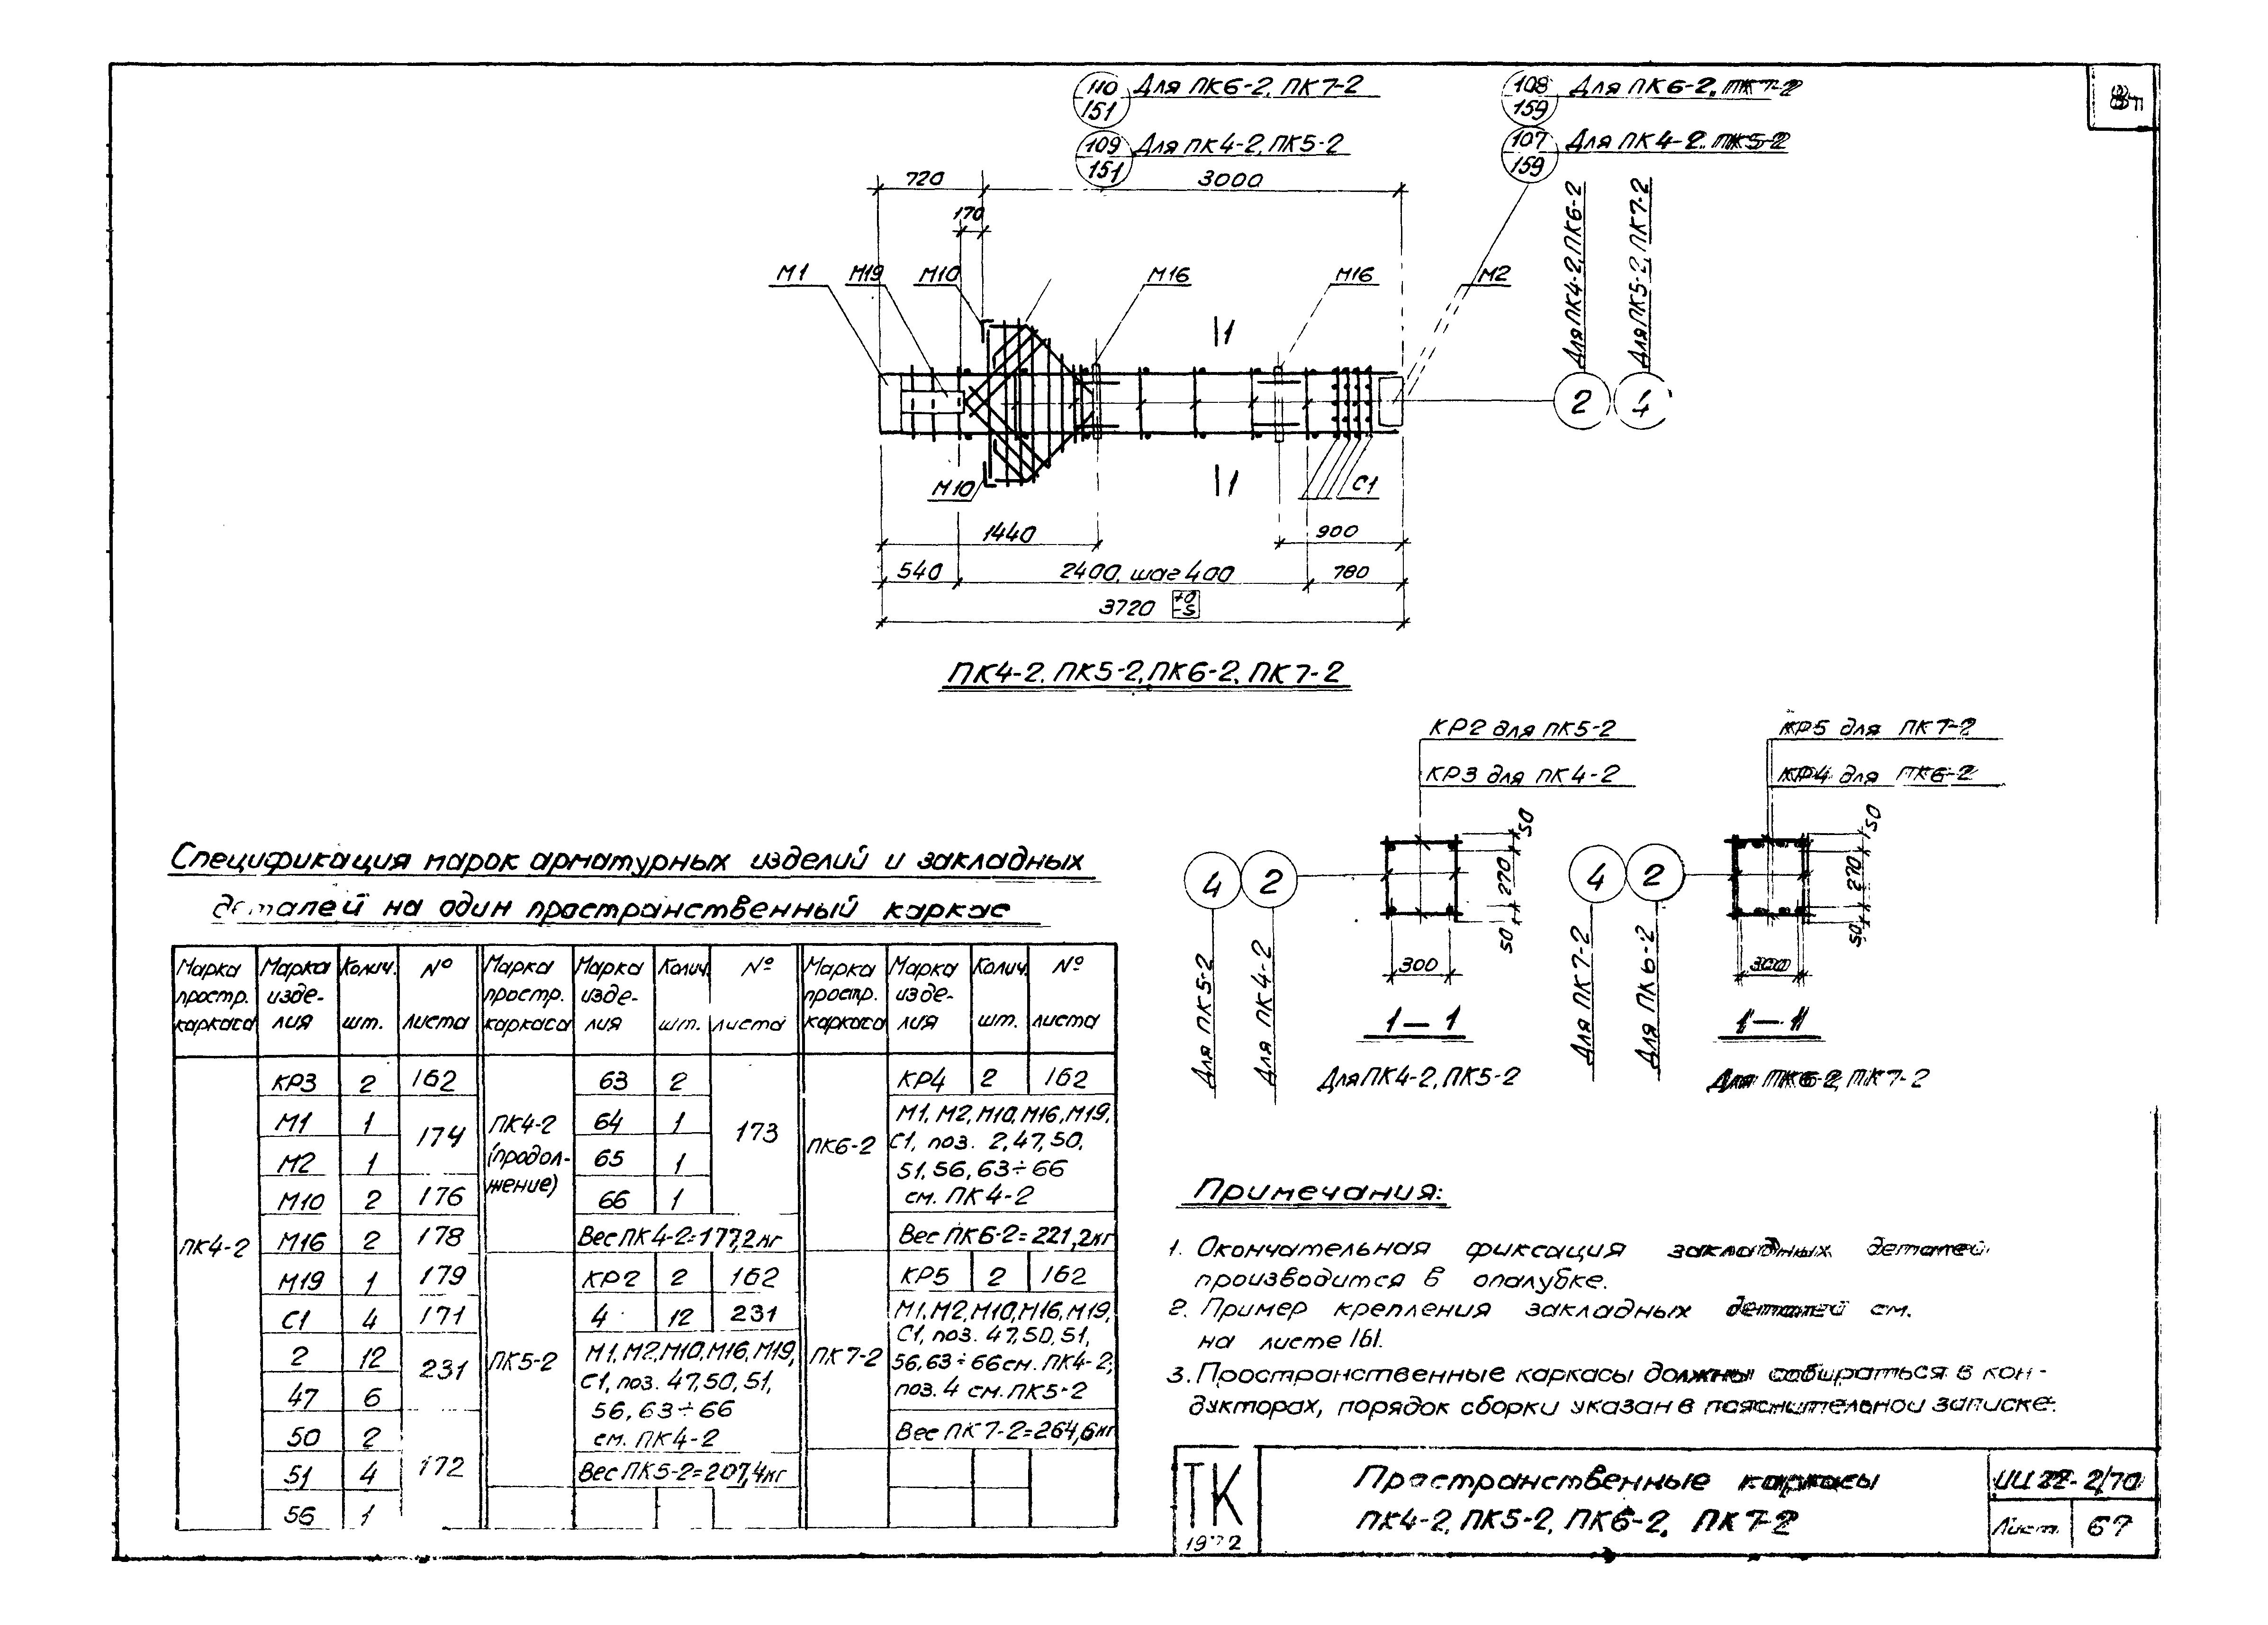 110
151
Для ПК6-2, ПК7-2
109
151
Для ПК4-2, ПК5-2
108
159
Для ПК6-2, ПК7-2
107
159
Для ПК4-2, ПК5-2
720
3000
170
М1
М19
М10
М16
М16
М2
Для ПК4-2, ПК6-2
Для ПК5-2, ПК7-2
2
4
1
1
М10
С1
1440
900
540
2400, шаг 400
780
3720 +0 -5
ПК4-2, ПК5-2, ПК6-2, ПК7-2
КР2 для ПК5-2
КР3 для ПК4-2
КР5 для ПК7-2
КР4 для ПК6-2
50
270
50
300
50
270
50
300
4
2
4
2
Для ПК5-2
Для ПК4-2
Для ПК7-2
Для ПК6-2
1—1
Для ПК4-2, ПК5-2
1—1
Для ПК6-2, ПК7-2
Спецификация марок арматурных изделий и закладных
деталей на один пространственный каркас
Марка простр. каркаса
Марка изде-лия
Колич. шт.
№ листа
Марка простр. каркаса
Марка изде-лия
Колич. шт.
№ листа
Марка простр. каркаса
Марка изде-лия
Колич. шт.
№ листа
ПК4-2
КР3 2 162
М1 1 174
М2 1
М10 2 176
М16 2 178
М19 1 179
С1 4 171
2 12 231
47 6
50 2 172
51 4
56 1
ПК4-2
(продол-
жение)
63 2 173
64 1
65 1
66 1
Вес ПК4-2=177,2кг
ПК5-2
КР2 2 162
4 12 231
М1, М2, М10, М16, М19,
С1, поз. 47, 50, 51,
56, 63÷66
см. ПК4-2
Вес ПК5-2=207,4кг
ПК6-2
КР4 2 162
М1, М2, М10, М16, М19,
С1, поз. 2, 47, 50,
51, 56, 63÷66
см. ПК4-2
Вес ПК6-2=221,2кг
ПК7-2
КР5 2 162
М1, М2, М10, М16, М19,
С1, поз. 47, 50, 51,
56, 63÷66 см. ПК4-2;
поз. 4 см. ПК5-2
Вес ПК7-2=264,6кг
Примечания:
1. Окончательная фиксация закладных деталей
производится в опалубке.
2. Пример крепления закладных деталей см.
на листе 161.
3. Пространственные каркасы должны собираться в кон-
дукторах, порядок сборки указан в пояснительной записке.
ТК
1972
Пространственные каркасы
ПК4-2, ПК5-2, ПК6-2, ПК7-2
ИИ22-2/70
Лист 67